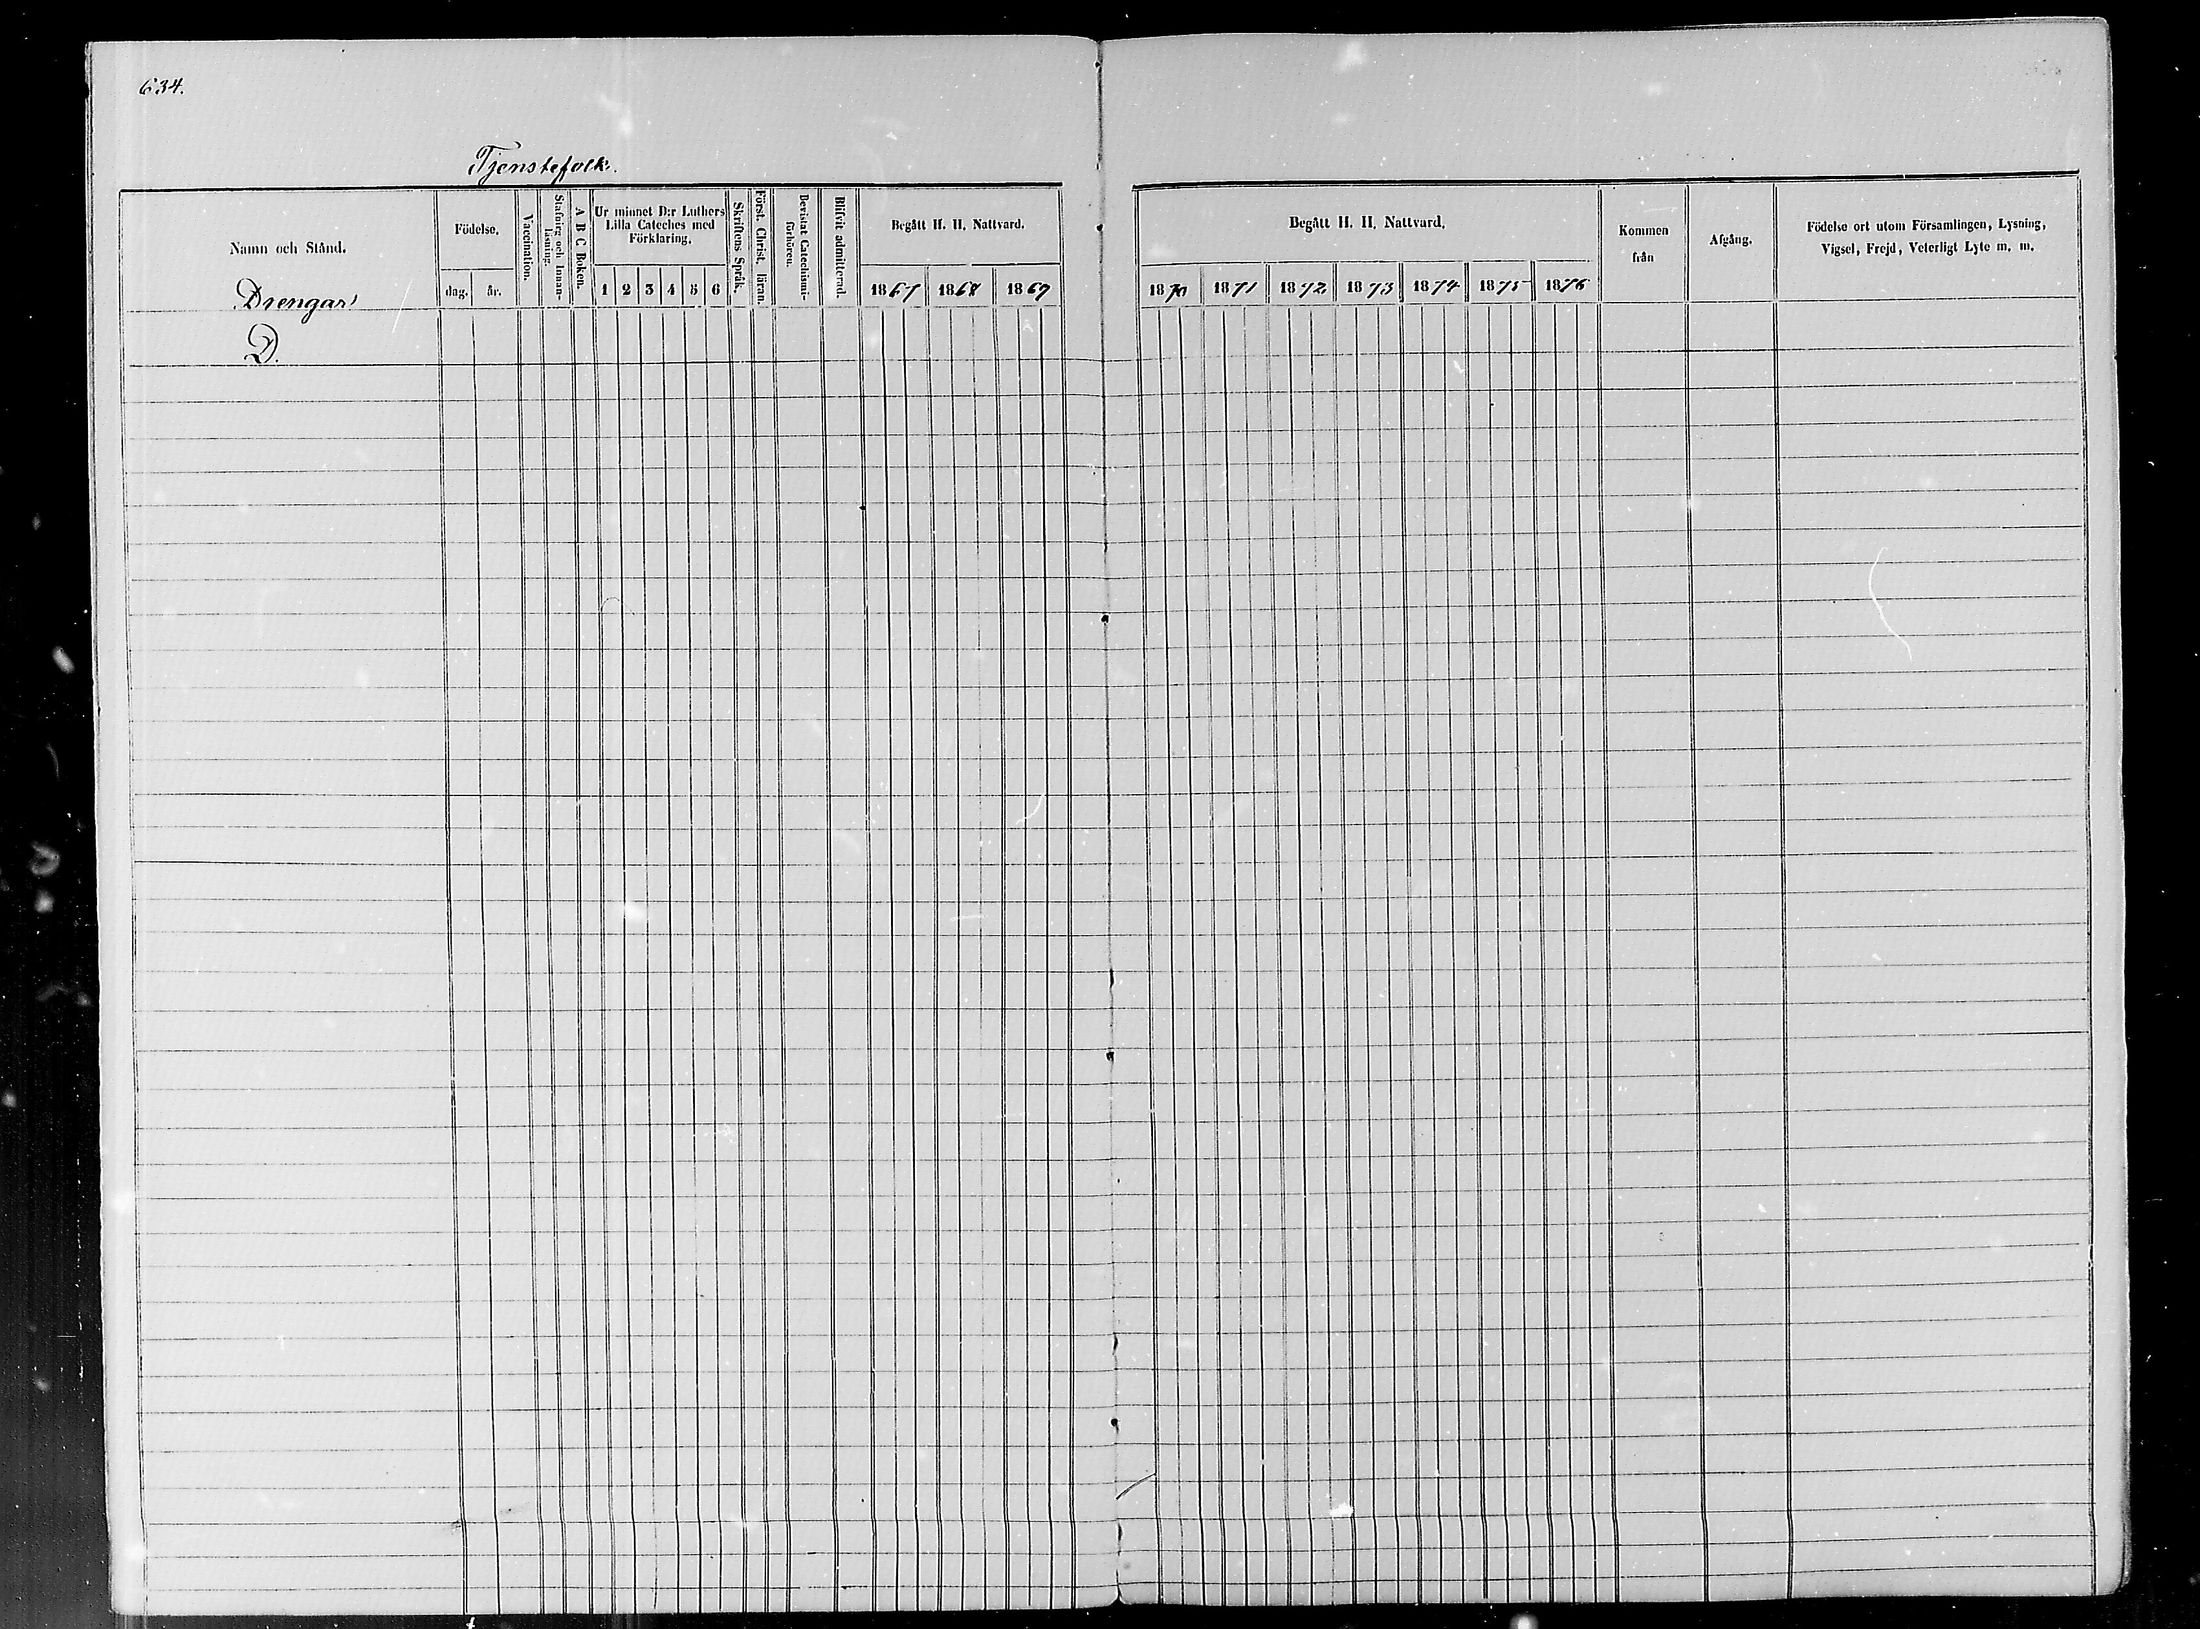 634.
Tjenstefolk.
Namn och Stånd.
Födelse.
dag.
år.
Vaccination.
Stafning och Innan-
läsning.
A B C Boken.
Ur minnet D:r Luthers
Lilla Cateches med
Förklaring.
1 2 3 4 5 6
Skriftens Språk.
Först. Christ. läran.
Bevistat Catechismi-
förhören.
Blifvit admitterad.
Begått H. H. Nattvard.
1867 1868 1869
Drengar
D.
Begått H. H. Nattvard.
1870 1871 1872 1873 1874 1875 1876
Kommen
från
Afgång.
Födelse ort utom Församlingen, Lysning,
Vigsel, Frejd, Veterligt Lyte m. m.